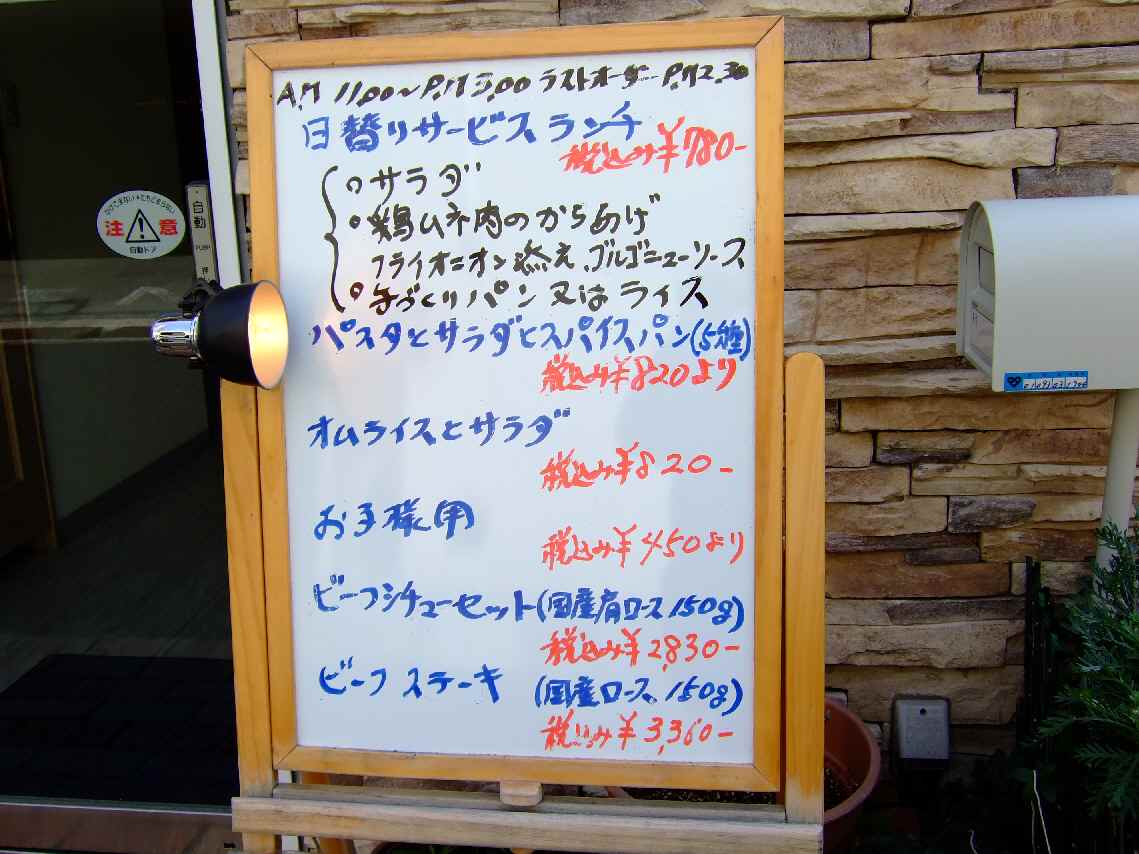 A.M 11.00~P.M 5.00 ラストオーダーP.M2.30
日替りサービスランチ
税込み¥780-
○サラダ
○鶏ムネ肉のからあげ
フライオニオン添え、ゴルゴニューソース
○手づくりパン又はライス
パスタとサラダとスパイスパン(5種)
税込み¥820より
オムライスとサラダ
税込み¥820-
お子様用
税込み¥450より
ビーフシチューセット(国産肩ロース150g)
税込み¥2,830-
ビーフステーキ (国産ロース150g)
税込み¥3,360-
注意
自動ドア
自動
PUSH
押